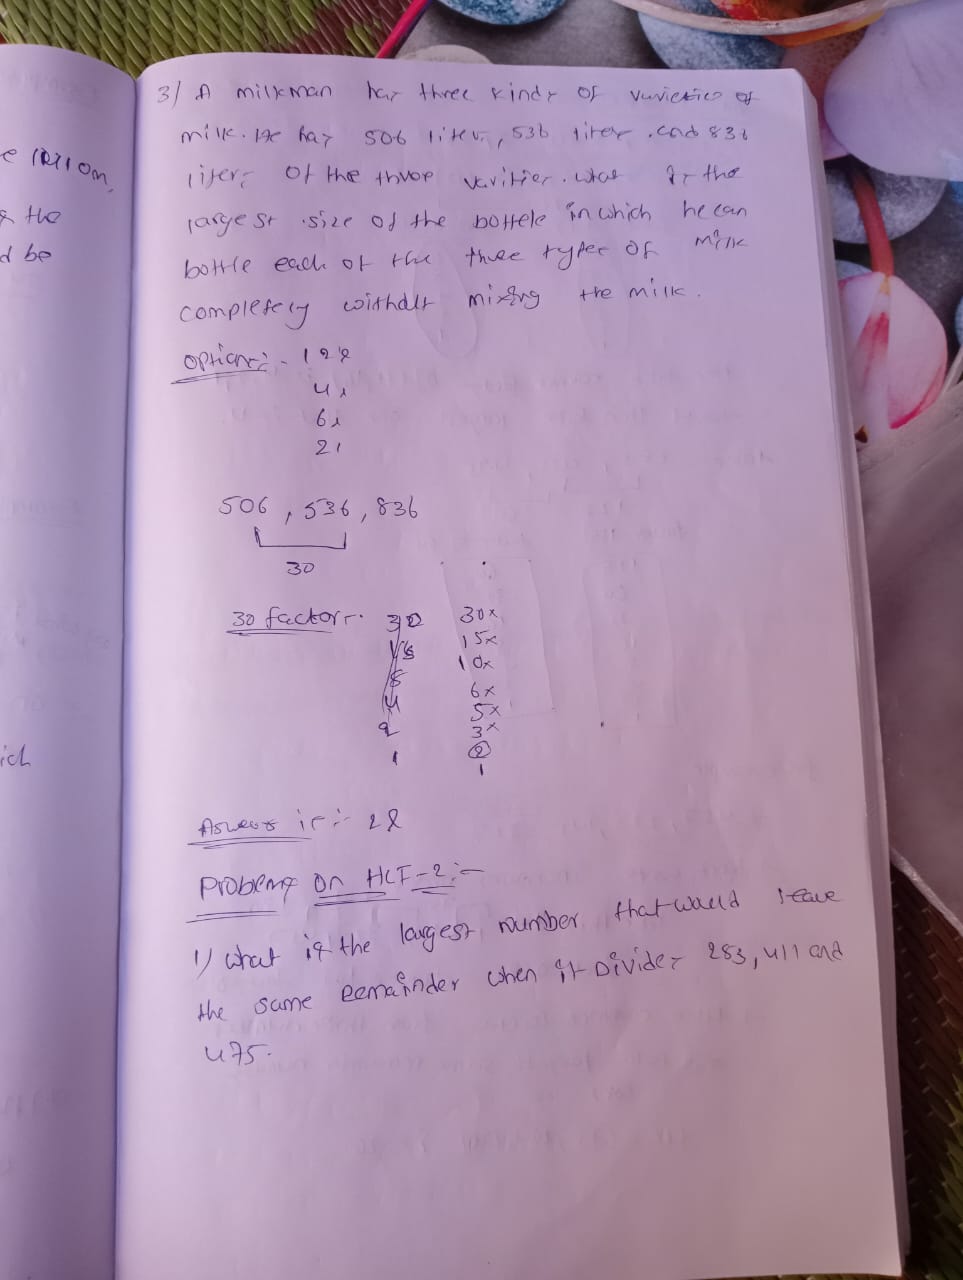 e
om,
& the
d be
ich
3) A milkman has three kinds of varieties of
milk. He has 506 liters, 536 liter and 836
liters of the three varities. what is the
largest size of the bottele in which he can
bottle each of the three types of milk
completely without mixing the milk.
option:- 12l
4l
6l
2l
506, 536, 836
30
30 factors:- 30 30x
15 15x
10x
6x
4 5x
2 3x
2
1 1
Answer is:- 2l
Problems on HCF-2:-
1) what is the largest number that would leave
the same remainder when it Divides 283, 411 and
475.